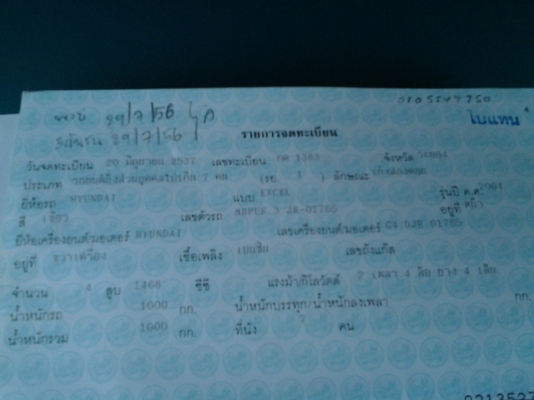 29/7/56
29/7/56
ใบแทน
รายการจดทะเบียน
วันจดทะเบียน 20 มิถุนายน 2537 เลขทะเบียน 1363 จังหวัด
ประเภท รถยนต์นั่งส่วนบุคคลไม่เกิน 7 คน (รย. 1 ) ลักษณะ
ยี่ห้อรถ HYUNDAI แบบ EXCEL รุ่นปี ค.ศ.
สี เขียว เลขตัวรถ JR-01765 อยู่ที่
ยี่ห้อเครื่องยนต์/มอเตอร์ HYUNDAI เลขเครื่องยนต์/มอเตอร์ G4 DJR 01765
อยู่ที่ ขวาเครื่อง เชื้อเพลิง เบนซิน เลขถังแก๊ส
จำนวน 4 สูบ 1468 ซีซี แรงม้า/กิโลวัตต์ 2 เพลา 4 ล้อ ยาง 4 เส้น
น้ำหนักรถ 1000 กก. น้ำหนักบรรทุก/น้ำหนักลงเพลา กก.
น้ำหนักรวม 1000 กก. ที่นั่ง 7 คน